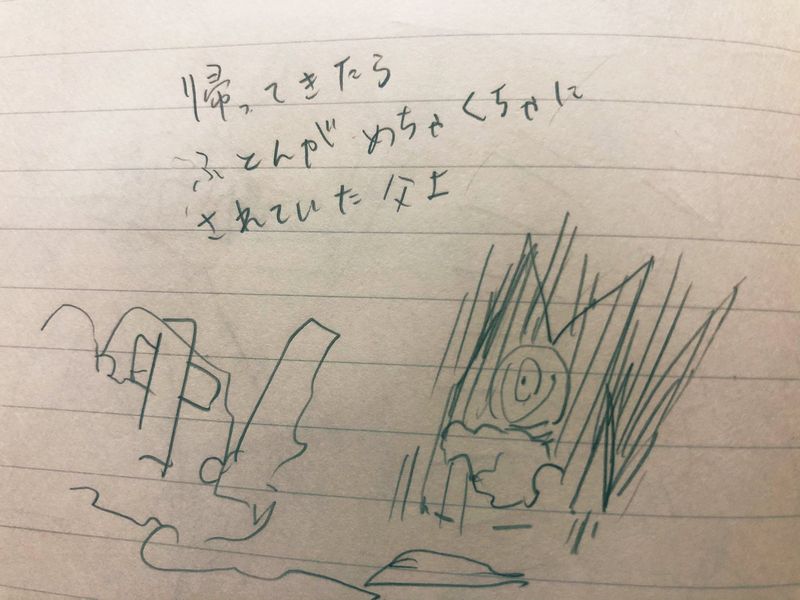 帰ってきたら
ふとんがめちゃくちゃに
されていた父上